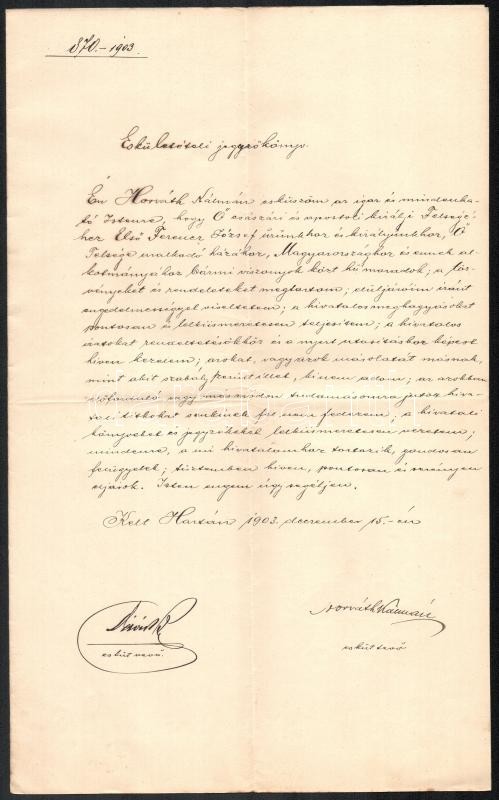 870.-1903.
Eskületételi jegyzőkönyv.
Én Horváth Kálmán esküszöm az igaz és mindenha-
tó Istenre, hogy Ő császári és apostoli királyi Felségé-
hez Első Ferencz József úrunkhoz és királyunkhoz, Ő
Felsége uralkodó házához, Magyarországhoz és ennek al-
kotmányához bármi viszonyok közt hű maradok; a tör-
vényeket és rendeleteket megtartom; elüljáróim iránt
engedelmességgel viseltetem; a hivatalos meghagyásokat
pontosan és lelkiismeretesen teljesítem; a hivatalos
iratokat rendeltetésökhöz és a nyert utasításhoz képest
híven kezelem; azokat, vagy azok másolatát másnak,
mint akit szabályszerűen illet, ki nem adom; az azokban
előforduló vagy más módon tudomásomra jutott hiva-
tali titkokat senkinek fel nem fedezem, a hivatali
könyveket és jegyzékeket lelkiismeretesen vezetem;
mindenre, a mi hivatalomhoz tartozik, gondosan
felügyelek; tisztemben híven, pontosan és serényen
eljárok. Isten engem úgy segéljen.
Kelt Hartán 1903. deczember 15.-én
Horváth Kálmán
esküt vevő. esküt tevő